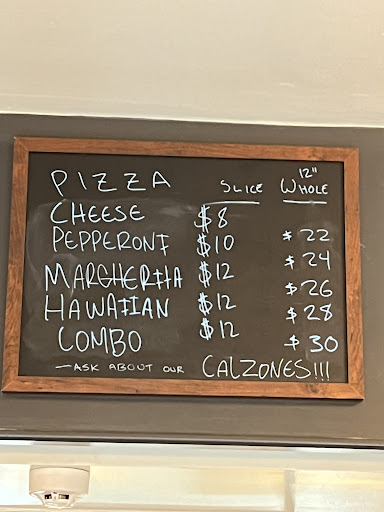 PIZZA SLICE 12" WHOLE
CHEESE $8 $22
PEPPERONI $10 $24
MARGHERITA $12 $26
HAWAIIAN $12 $28
COMBO $12 $30
—ASK ABOUT OUR CALZONES!!!